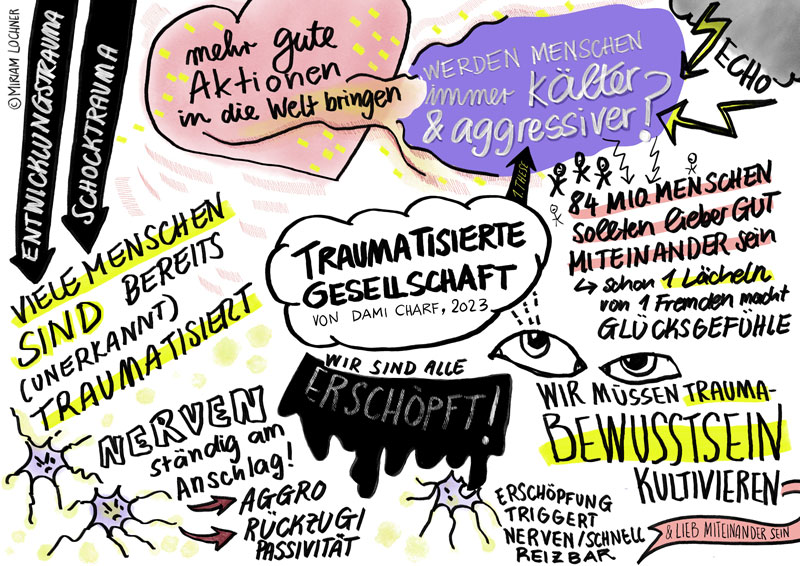 © MIRIAM LOCHNER
ENTWICKLUNGSTRAUMA
SCHOCKTRAUMA
mehr gute
Aktionen
in die Welt bringen
WERDEN MENSCHEN
immer kälter
& aggressiver?
ECHO
1. THESE
84 MIO. MENSCHEN
sollten lieber GUT
MITEINANDER sein
↳ schon 1 Lächeln
von 1 Fremden macht
GLÜCKSGEFÜHLE
TRAUMATISIERTE
GESELLSCHAFT
VON DAMI CHARF, 2023
VIELE MENSCHEN
SIND BEREITS
(UNERKANNT)
TRAUMATISIERT
WIR SIND ALLE
ERSCHÖPFT!
NERVEN
ständig am
Anschlag!
→ AGGRO
→ RÜCKZUG/
PASSIVITÄT
WIR MÜSSEN TRAUMA-
BEWUSSTSEIN
KULTIVIEREN
& LIEB MITEINANDER SEIN
ERSCHÖPFUNG
TRIGGERT
NERVEN/SCHNELL
REIZBAR